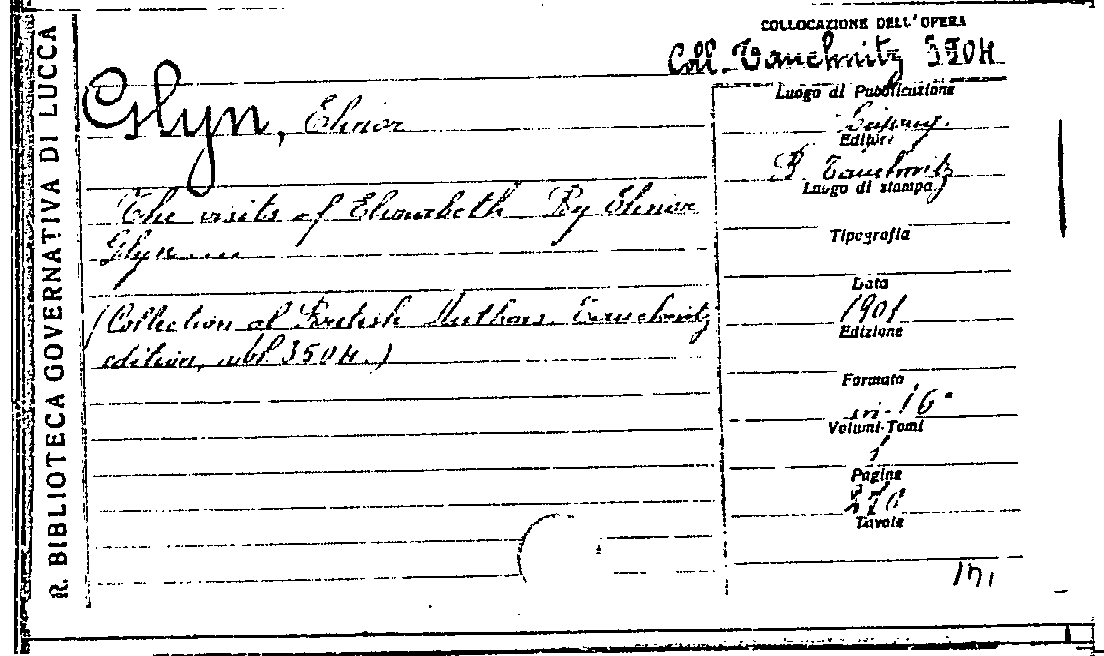 R. BIBLIOTECA GOVERNATIVA DI LUCCA
COLLOCAZIONE DELL'OPERA
Coll. Tauchnitz 3504
Glyn, Elinor
The visits of Elizabeth By Elinor
Glyn
(Collection of British Authors. Tauchnitz
edition, vol 3504.)
Luogo di Pubblicazione
Editore
B. Tauchnitz
Luogo di stampa
Tipografia
Data
1901
Edizione
Formato
in-16°
Volumi-Tomi
1
Pagine
Tavole